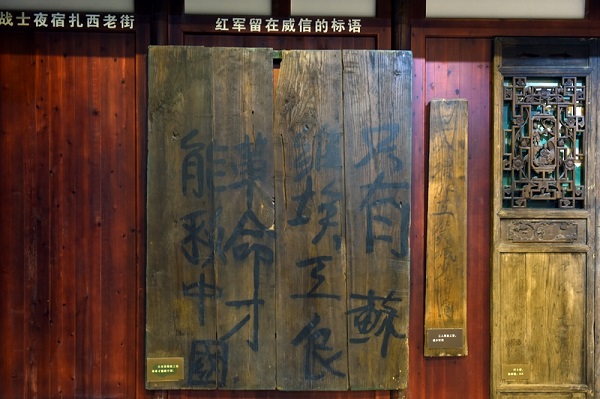 战士夜宿扎西老街
红军留在威信的标语
只有蘇
維埃工农
革命才
能救中國